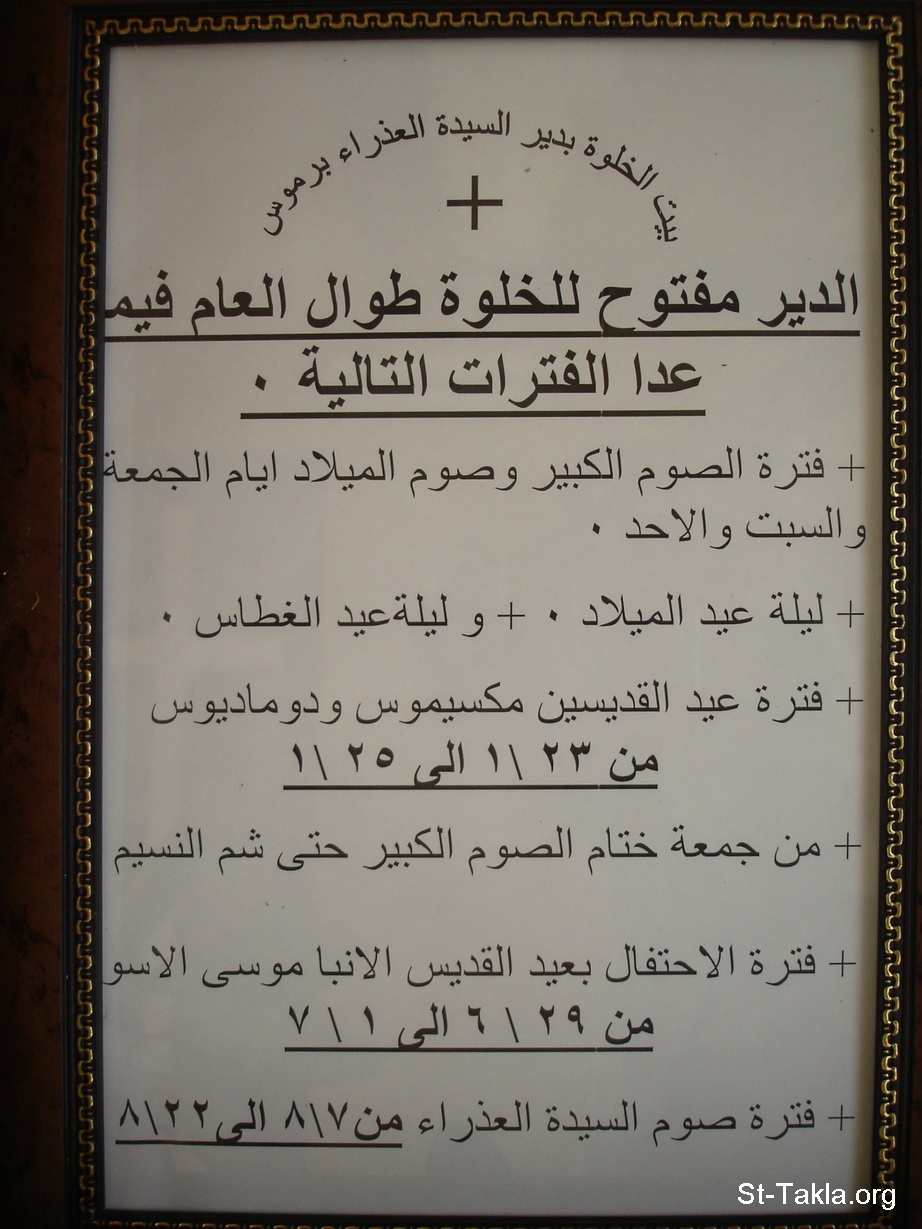 بيت الخلوة بدير السيدة العذراء برموس
+
الدير مفتوح للخلوة طوال العام فيم
عدا الفترات التالية ٠
+ فترة الصوم الكبير وصوم الميلاد ايام الجمعة
والسبت والاحد ٠
+ ليلة عيد الميلاد ٠ + و ليلةعيد الغطاس ٠
+ فترة عيد القديسين مكسيموس ودوماديوس
من ٢٣ \ ١ الى ٢٥ \ ١
+ من جمعة ختام الصوم الكبير حتى شم النسيم
+ فترة الاحتفال بعيد القديس الانبا موسى الاسو
من ٢٩ \ ٦ الى ١ \ ٧
+ فترة صوم السيدة العذراء من٧\٨ الى٢٢\٨
St-Takla.org